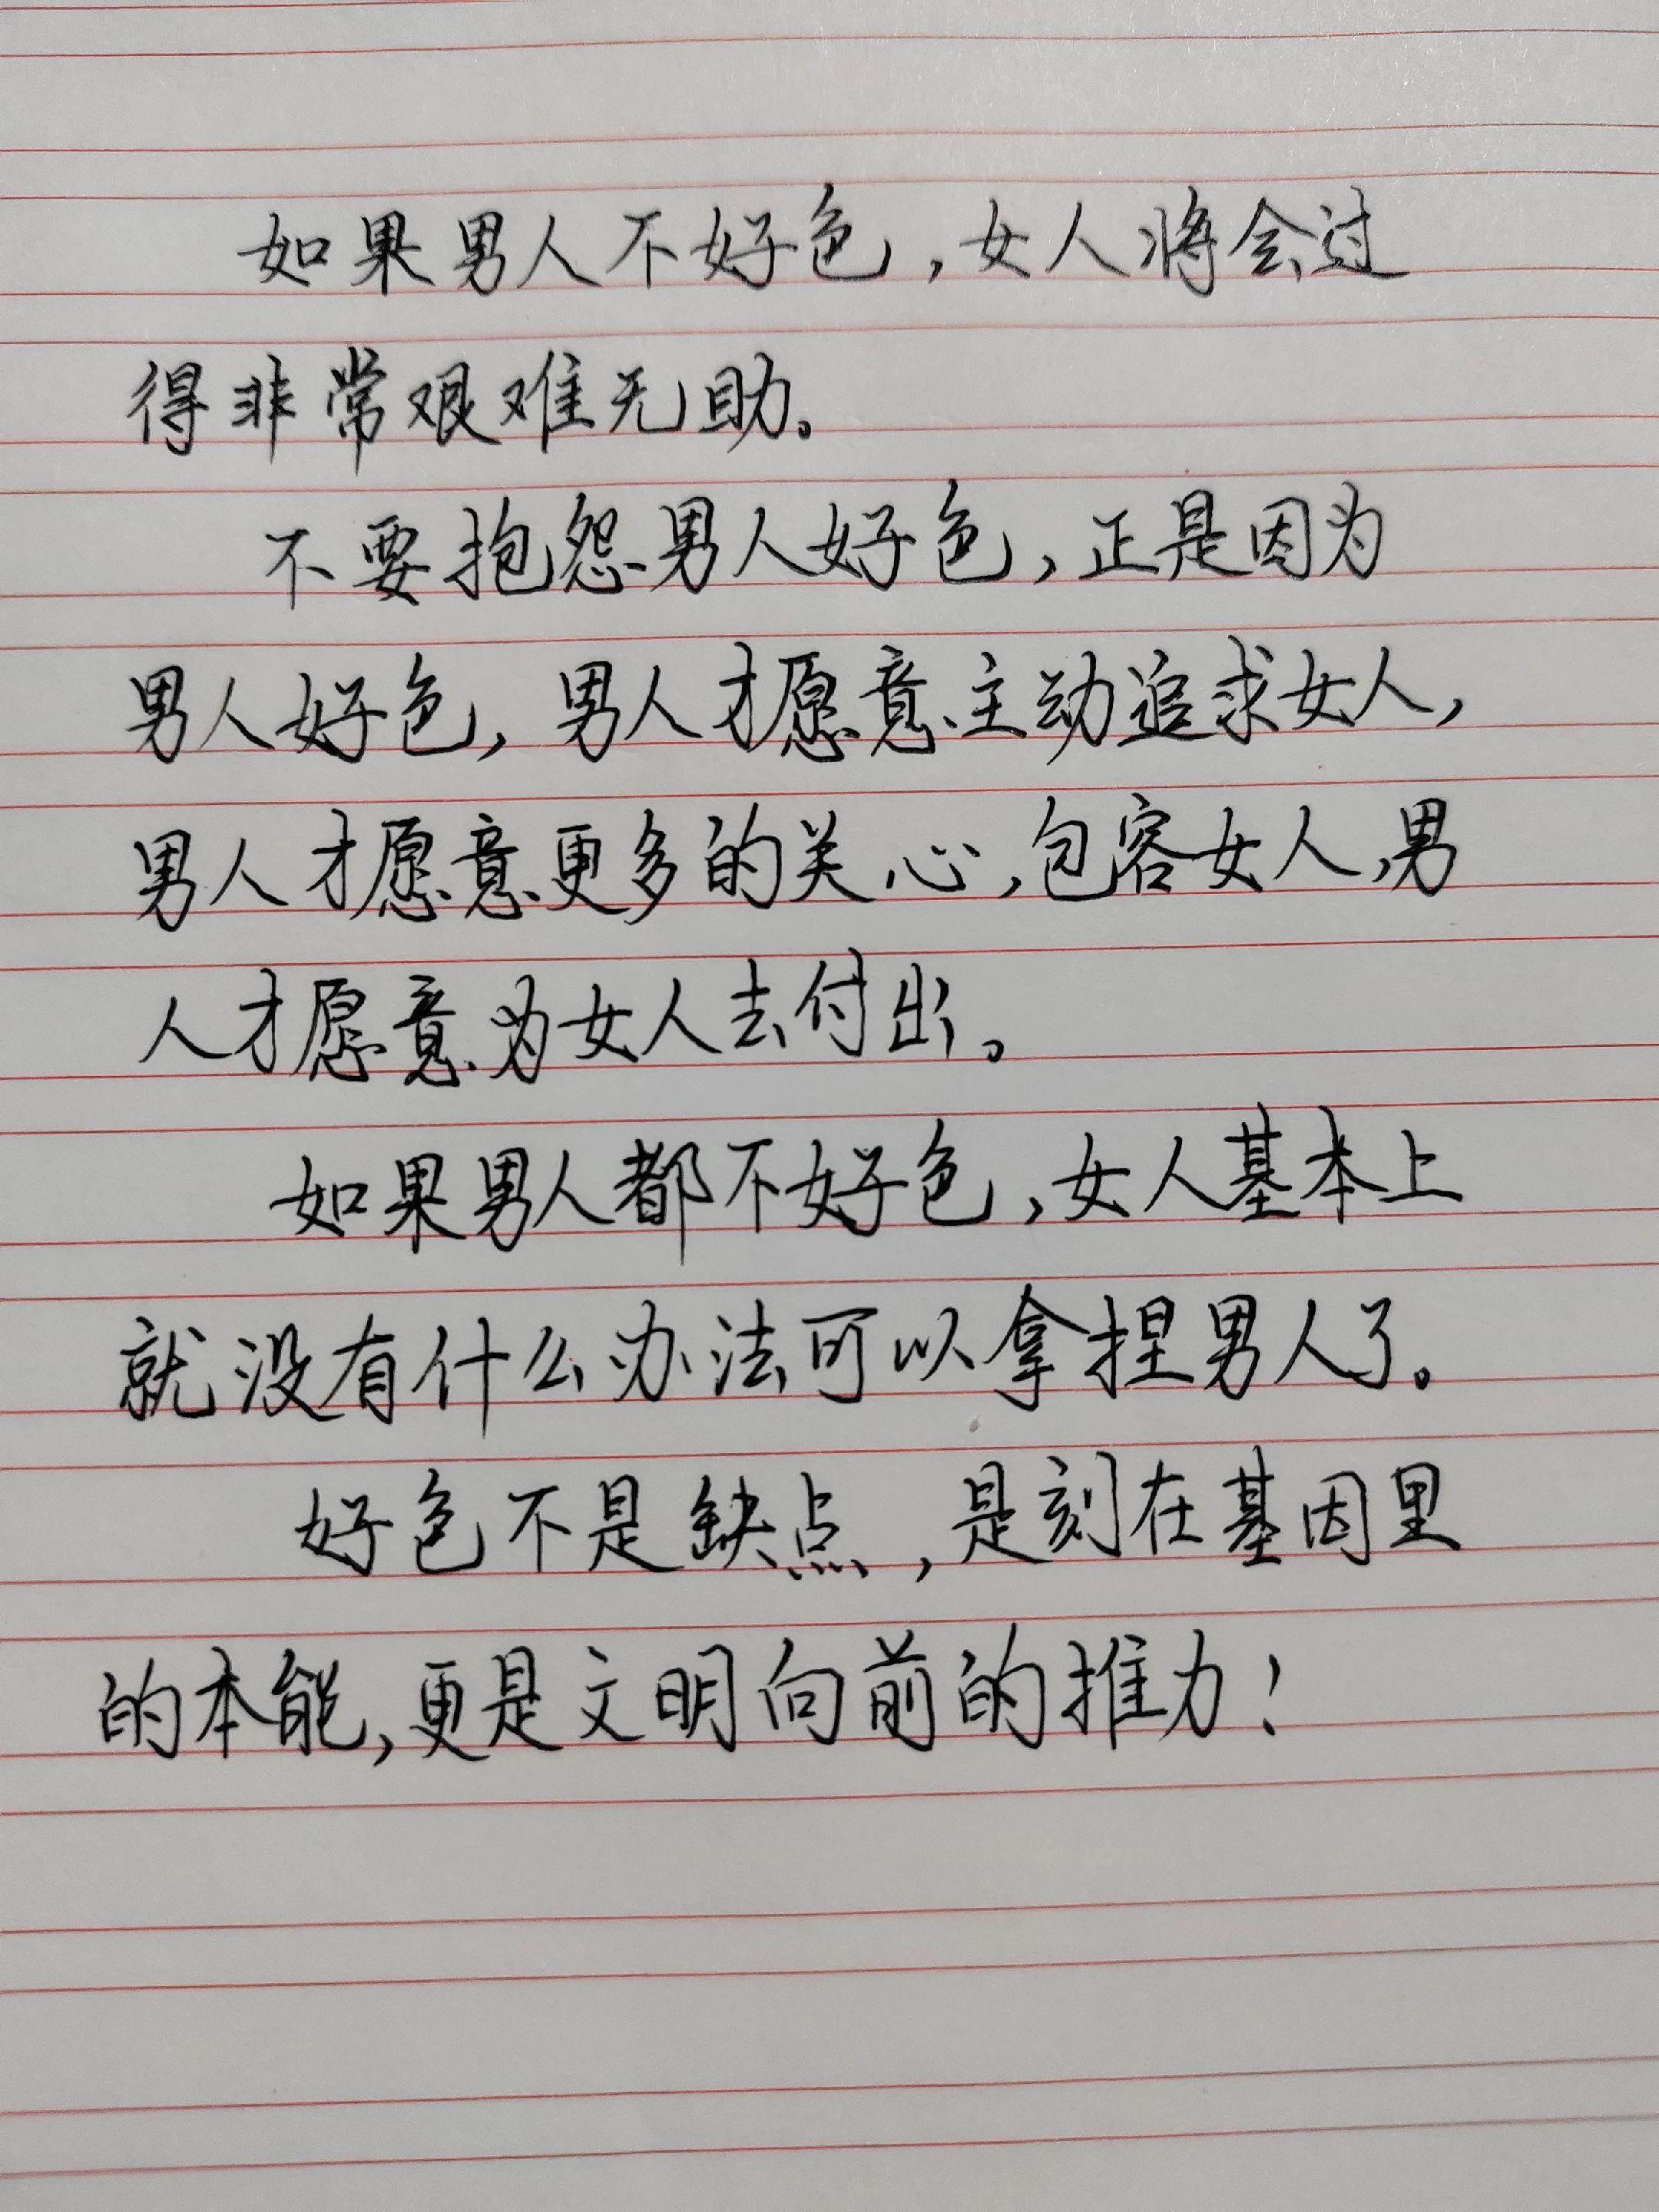 如果男人不好色,女人将会过
得非常艰难无助。
不要抱怨男人好色,正是因为
男人好色,男人才愿意主动追求女人,
男人才愿意更多的关心,包容女人,男
人才愿意为女人去付出。
如果男人都不好色,女人基本上
就没有什么办法可以拿捏男人了。
好色不是缺点,是刻在基因里
的本能,更是文明向前的推力!